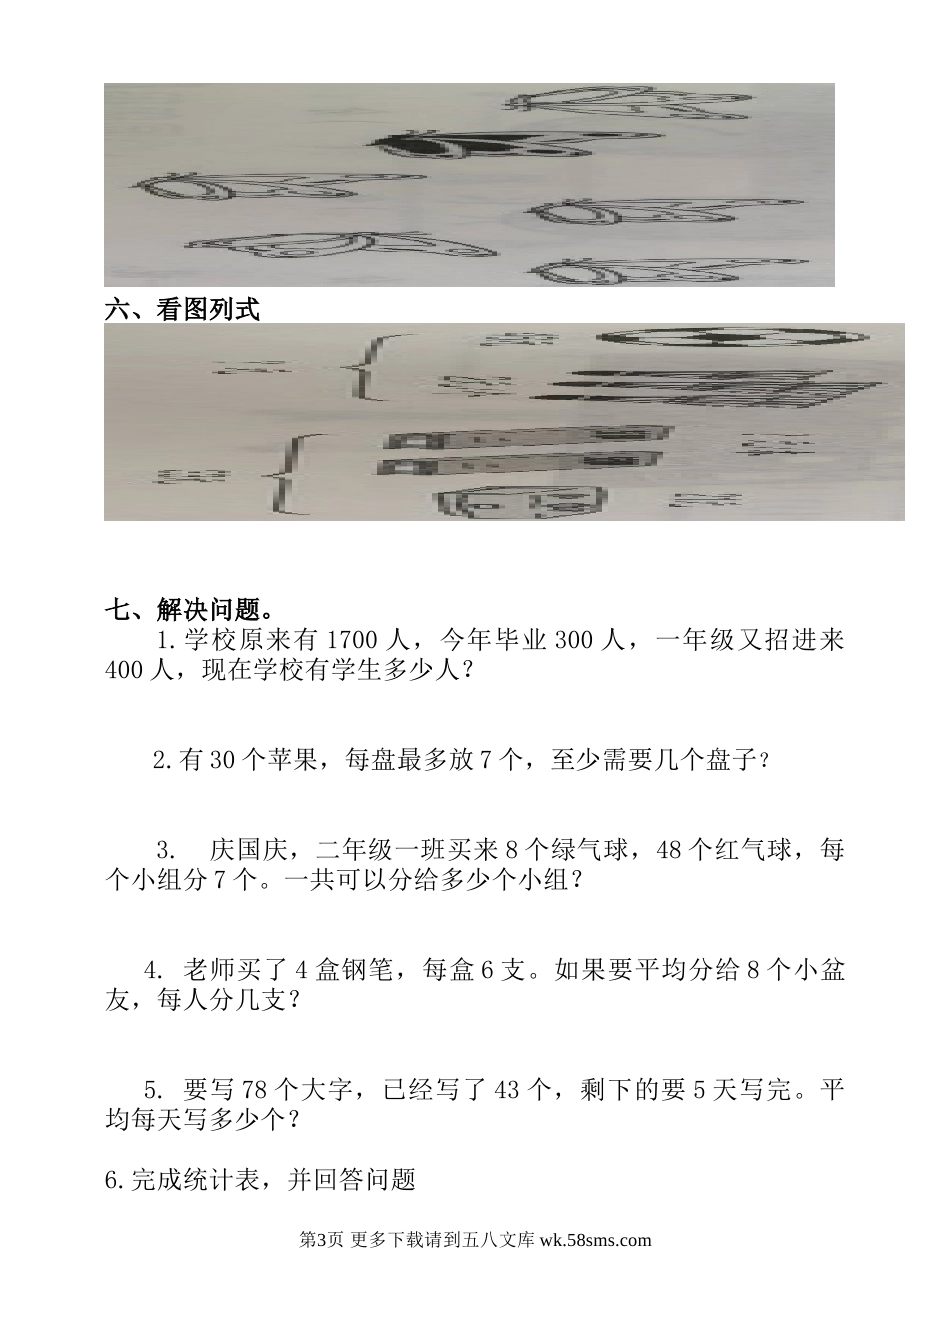 六、看图列式
七、解决问题。
1.学校原来有1700人，今年毕业300人，一年级又招进来
400人，现在学校有学生多少人？
2.有30个苹果，每盘最多放7个，至少需要几个盘子？
3. 庆国庆，二年级一班买来8个绿气球，48个红气球，每
个小组分7个。一共可以分给多少个小组？
4. 老师买了4盒钢笔，每盒6支。如果要平均分给8个小盆
友，每人分几支？
5. 要写78个大字，己经写了43个，剩下的要5天写完。平
均每天写多少个？
6.完成统计表，并回答问题
第3页 更多下载请到五八文库 wk.58sms.com